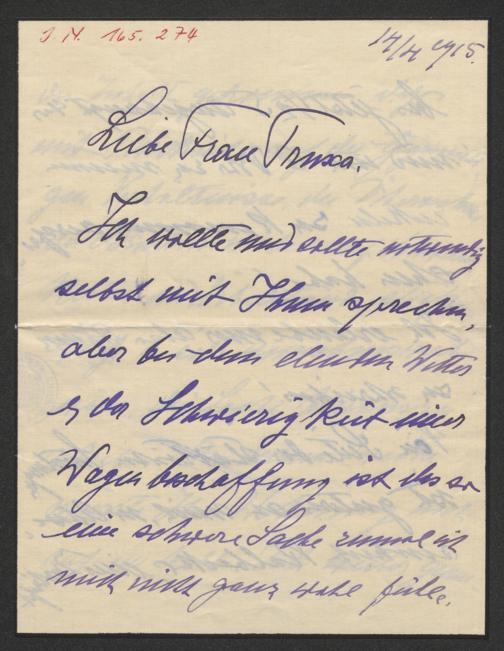 J. N. 165.274
14/4 1915.
Liebe Frau Truxa.
Ich wollte und sollte notwendig
selbst mit Ihnen sprechen,
aber bei dem elenden Wetter
& der Schwierigkeit einer
Wagenbeschaffung ist das so
eine schwere Sache zumal ich
mich nicht ganz wohl fühle.